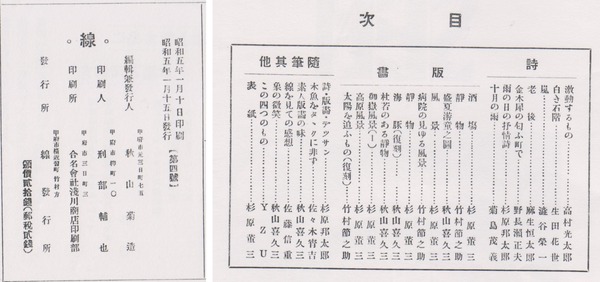 目次
詩
激動するもの……高村光太郎
白き石階……生田花世
嵐……澁谷榮一
老後……麻生恒太郎
金木犀の匂ふ町で……野長瀬正夫
雨の日の抒情詩……杉原邦太郎
十月の雨……菊島茂義
版畫
酒場……杉原董三
靜物……竹村節之助
盛夏游童之圖……秋山喜久三
風景……杉原董三
病院の見ゆる風景……竹村節之助
靜屋……杉原董三
杖若のある靜物……秋山喜久三
海豚(復刻)……秋山喜久三
御嶽風景(一)……杉原董三
高原風景……竹村節之助
太陽を追ふもの(復刻)……杉原董三
隨筆其他
詩・版畫・デツサン……杉原邦太郎
木魚をタヽクに非ず……佐々木宵吉
素人版畫の味……秋山喜久三
線を見ての感想……佐藤信重
梟の微笑……秋山喜久三
この四つのもの……YZU
表紙……杉原董三
昭和五年一月十日印刷
昭和五年一月十五日發行
【第四號】
甲府市元三日町七五
編輯兼發行人 秋山菊造
甲府市柳町一〇
印刷人 刑部輔也
甲府市三日町三
印刷所 合名會社淺川商店印刷部
甲府市 竹村方
發行所 線發行所
頒價貳拾錢(郵稅貳錢)
。線。